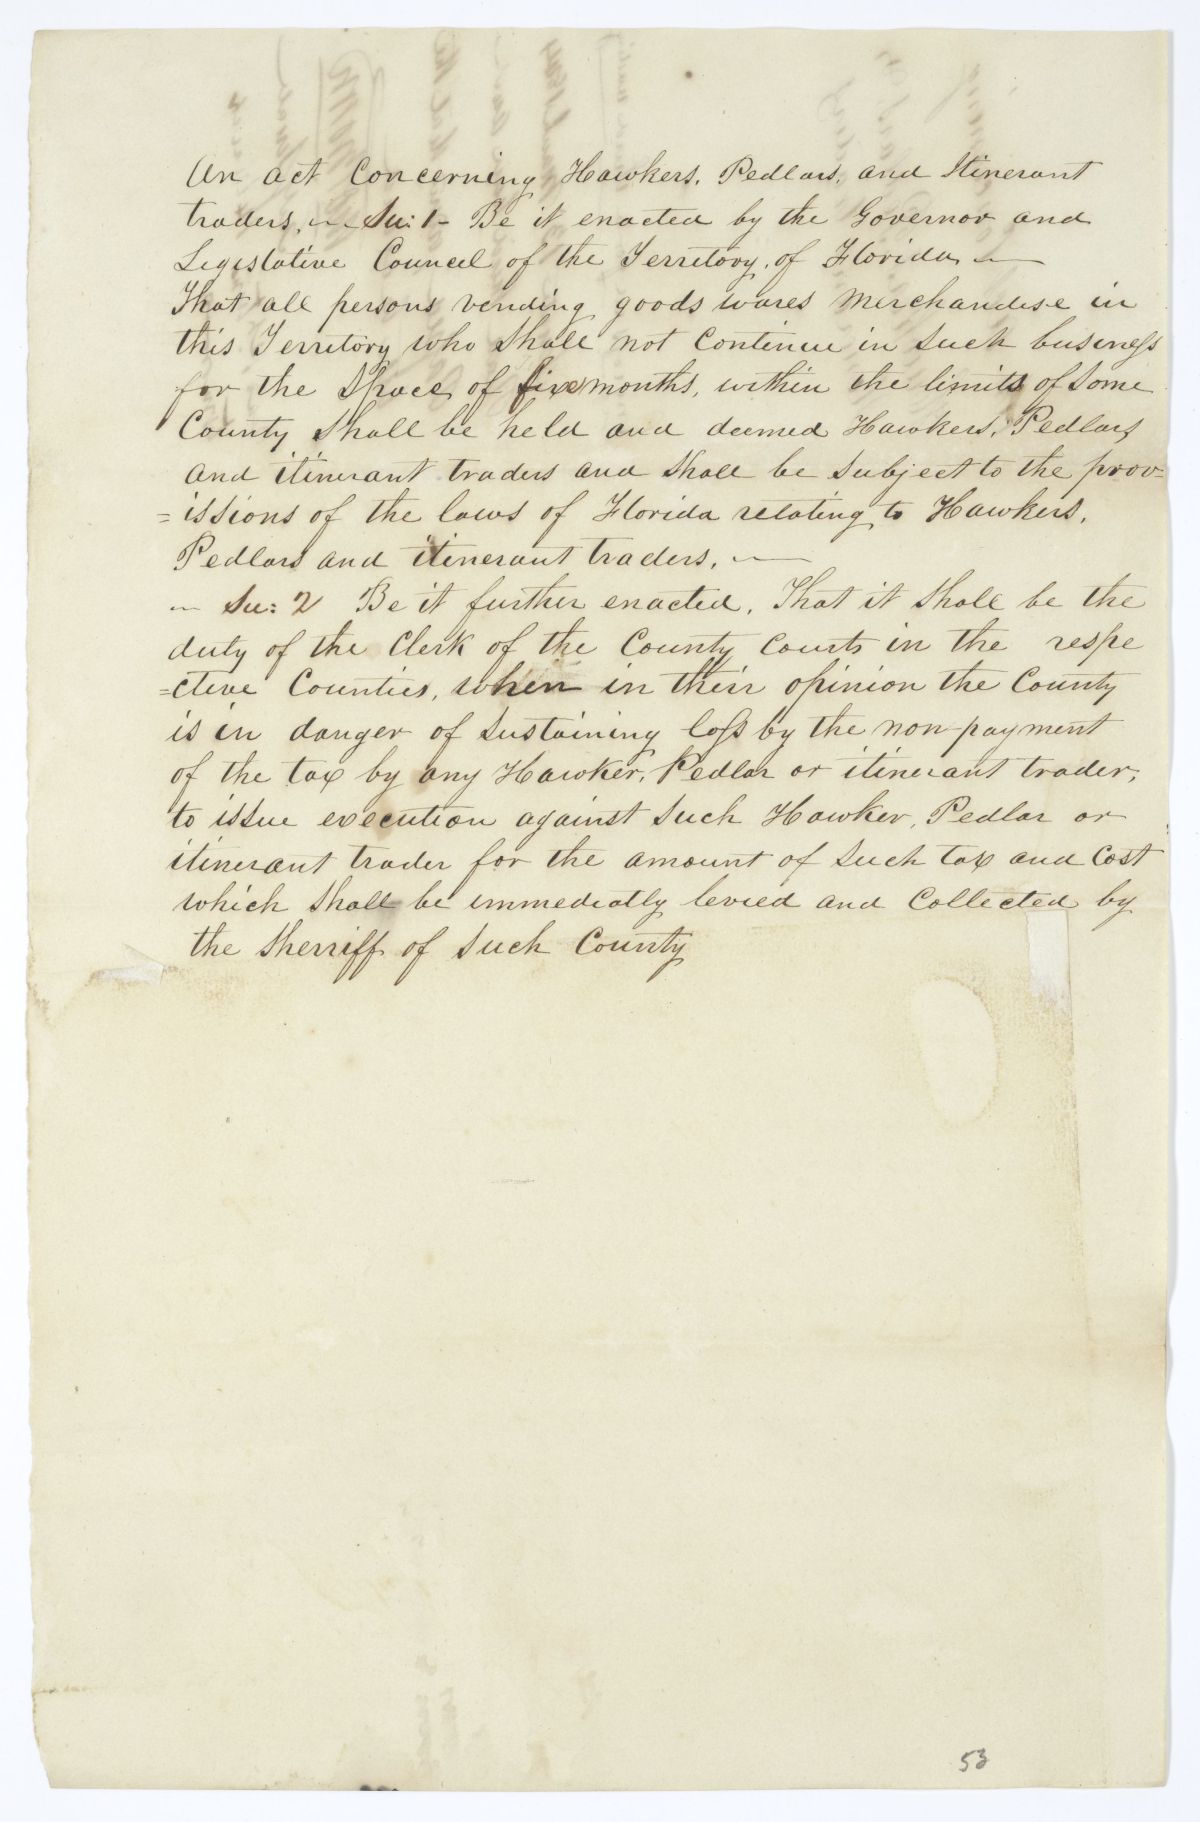 An act Concerning Hawkers, Pedlars, and Itinerant
traders, ~ Sec: 1 - Be it enacted by the Governor and
Legislative Council of the Territory of Florida —
That all persons vending goods wares Merchandise in
this Territory who Shall not Continue in Such business
for the Space of Six months, within the limits of Some
County Shall be held and deemed Hawkers, Pedlars
and itinerant traders and Shall be Subject to the prov=
=issions of the laws of Florida relating to Hawkers,
Pedlars and itinerant traders. —
~ Sec: 2 Be it further enacted, That it Shall be the
duty of the Clerk of the County Courts in the respe
=ctive Counties, when in their opinion the County
is in danger of Sustaining loss by the non-payment
of the tax by any Hawker, Pedlar or itinerant trader,
to issue execution against Such Hawker, Pedlar or
itinerant trader for the amount of Such tax and Cost
which Shall be immediatly levied and Collected by
the Sherriff of Such County
53